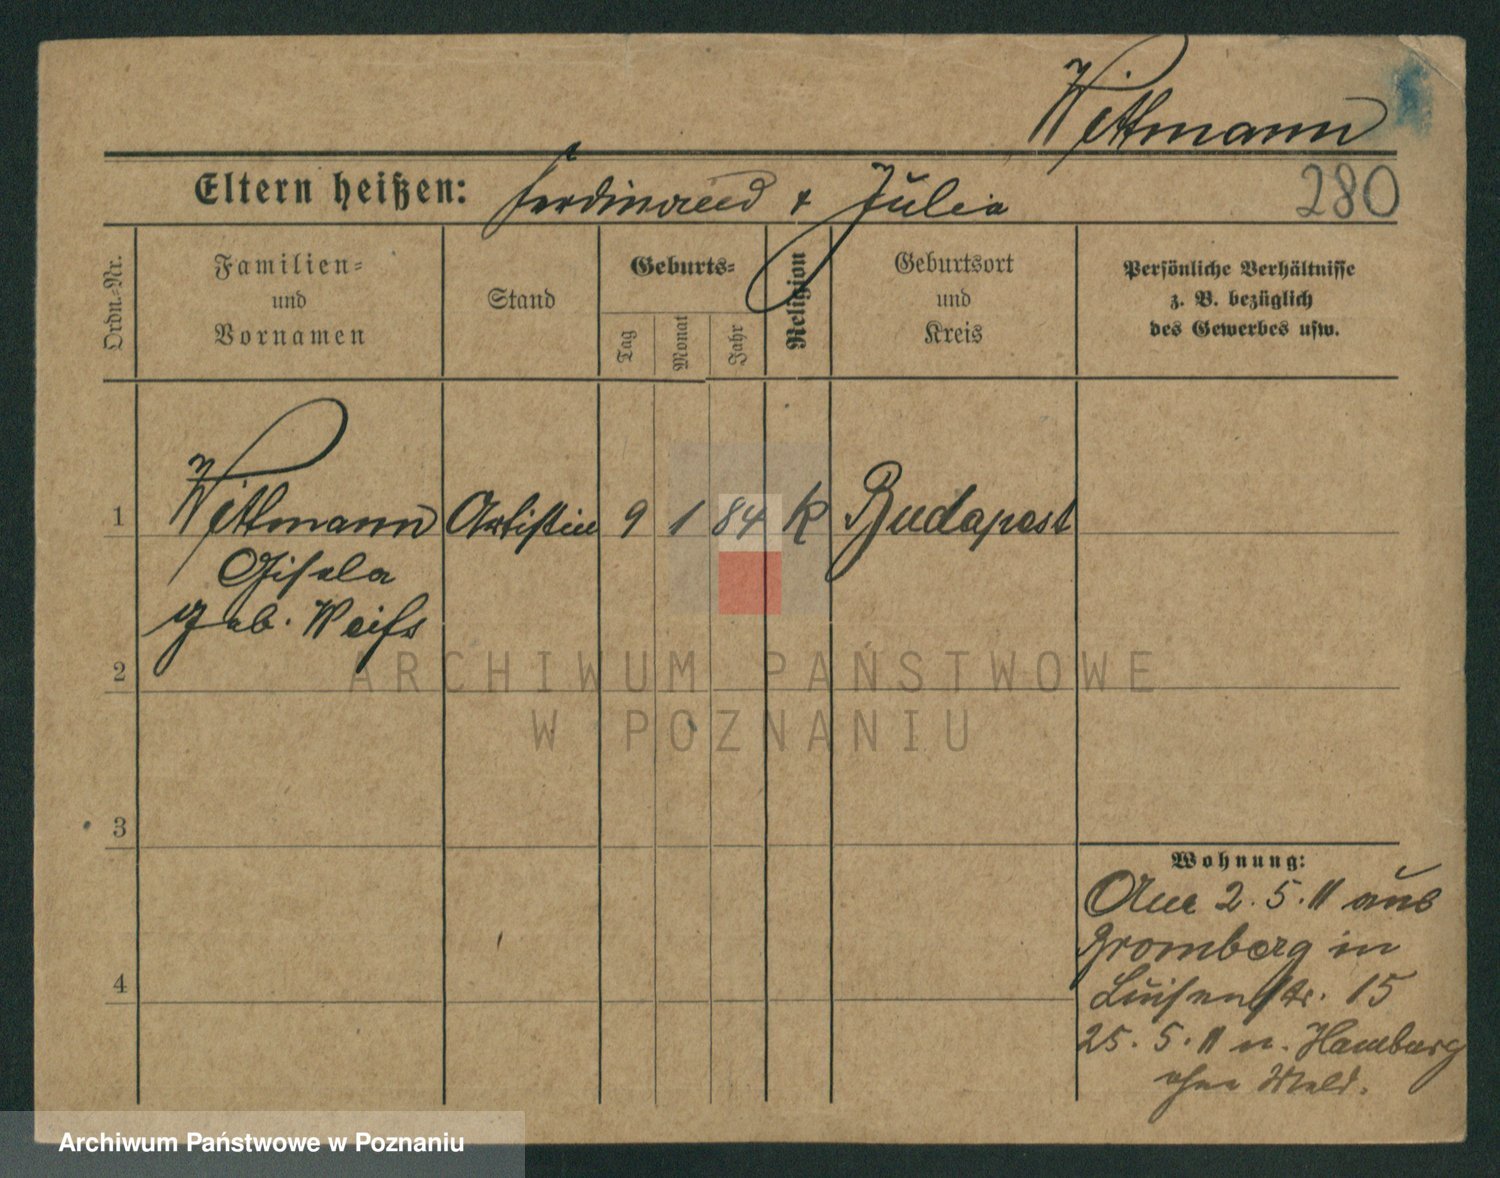 Wittmann
Eltern heißen: Ferdinand + Julia 280
Ordn.-Nr.
Familien-
und
Vornamen
Stand
Geburts-
Tag
Monat
Jahr
Religion
Geburtsort
und
Kreis
Persönliche Verhältnisse
z. B. bezüglich
des Gewerbes usw.
1 Wittmann Artistin 9 1 84 K Budapest
Gisela
geb. Weiss
2
3
4
Wohnung:
2. 5. 11 aus
Bromberg in
Luisenstr. 15
25. 5. 11 n. Hamburg
ohne Meld.
ARCHIWUM PAŃSTWOWE
W POZNANIU
Archiwum Państwowe w Poznaniu